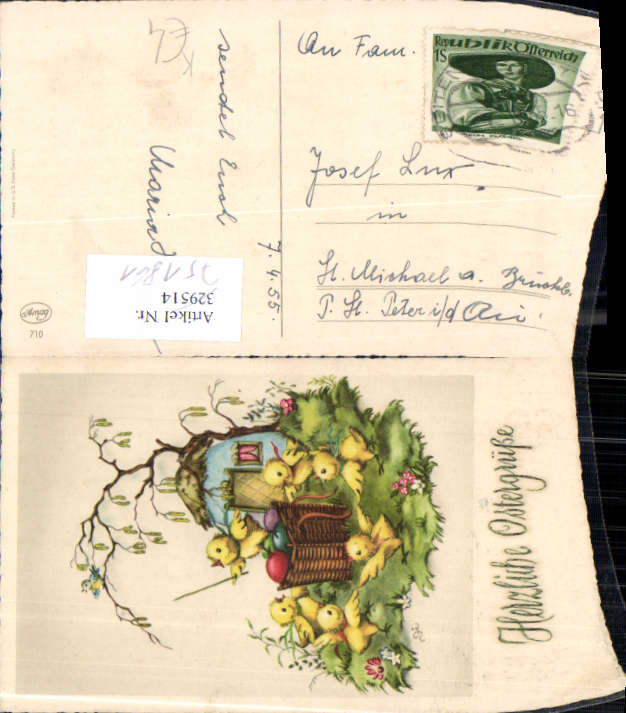 An Fam.
Josef Lux.
in
St. Michael a.
P. St. Peter i/d Au
sendet Euch
7.4.55.
Republik Österreich
1S
Artikel Nr.
329514
710
Herzliche Ostergrüße